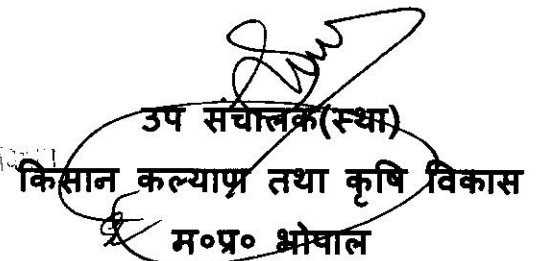 उप संचालक(स्था)
किसान कल्याण तथा कृषि विकास
म०प्र० भोपाल